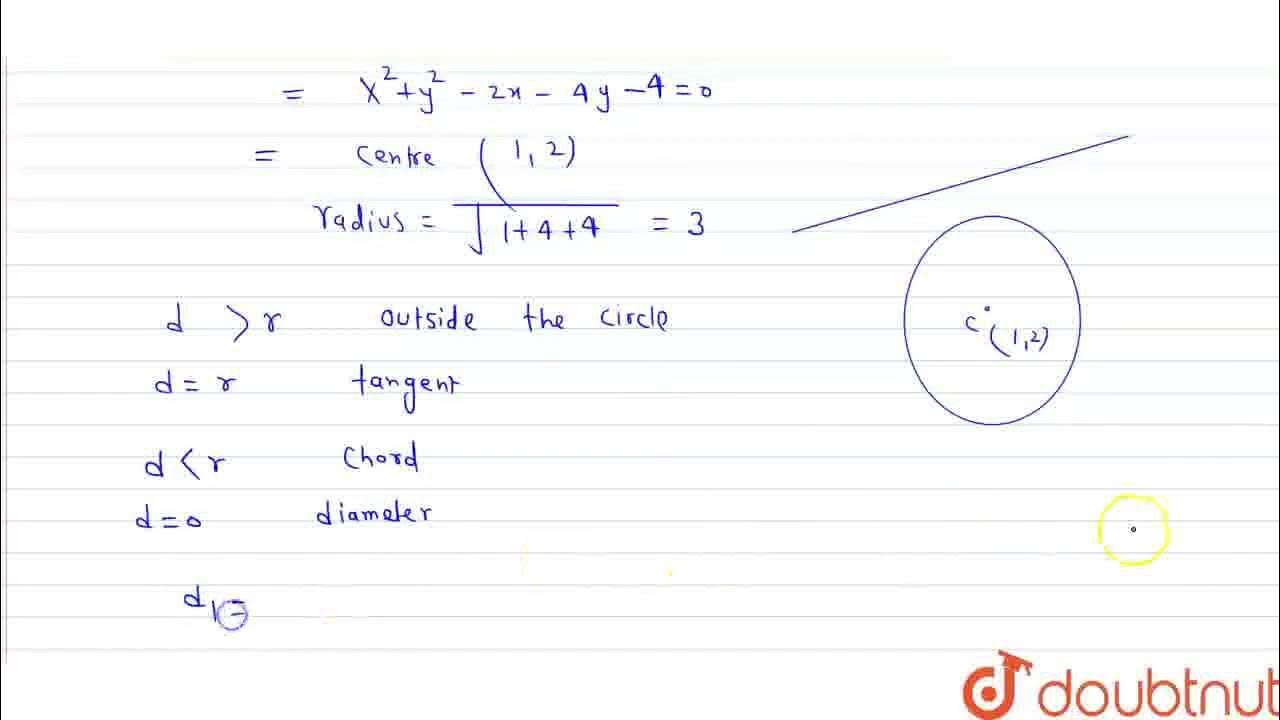 = x²+y² - 2x - 4y - 4 = 0
= centre (1, 2)
radius = √1+4+4 = 3
d > r outside the circle
d = r tangent
d < r chord
d = 0 diameter
d₁ =
C (1,2)
doubtnut